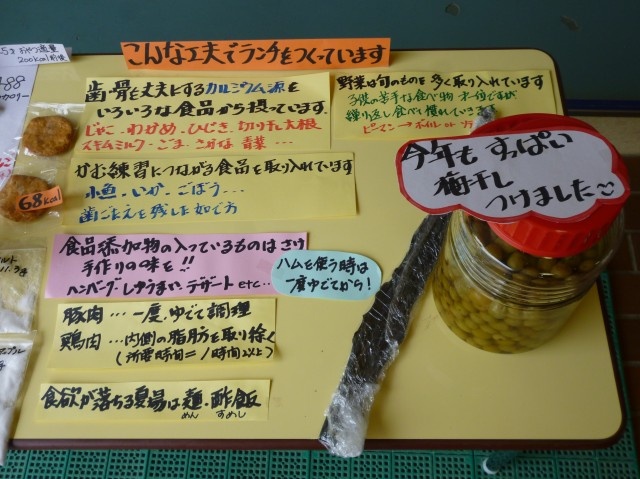 こんな工夫でランチをつくっています
おやつ適量
200kcal前後
歯・骨を丈夫にするカルシウム源を
いろいろな食品から摂っています
じゃこ・わかめ・ひじき・切り干し大根
スキムミルク・ごま・さかな・青菜…
野菜は旬のものを多く取り入れています
子供の苦手な食べ物
繰り返し食べ慣れていきます
ピーマン→ボイル
かむ練習につながる食品を取り入れています
小魚・いか・ごぼう…
歯ごたえを残したゆで方
68kcal
食品添加物の入っているものはさけ
手作りの味を!!
ハンバーグ しゅうまい デザート etc…
ハムを使う時は
一度ゆでてから!
豚肉…一度、ゆでて調理
鶏肉…内側の脂肪を取り除く
(所要時間=1時間以上)
食欲が落ちる夏場は麺・酢飯
めん すめし
今年も すっぱい
梅干し
つけました